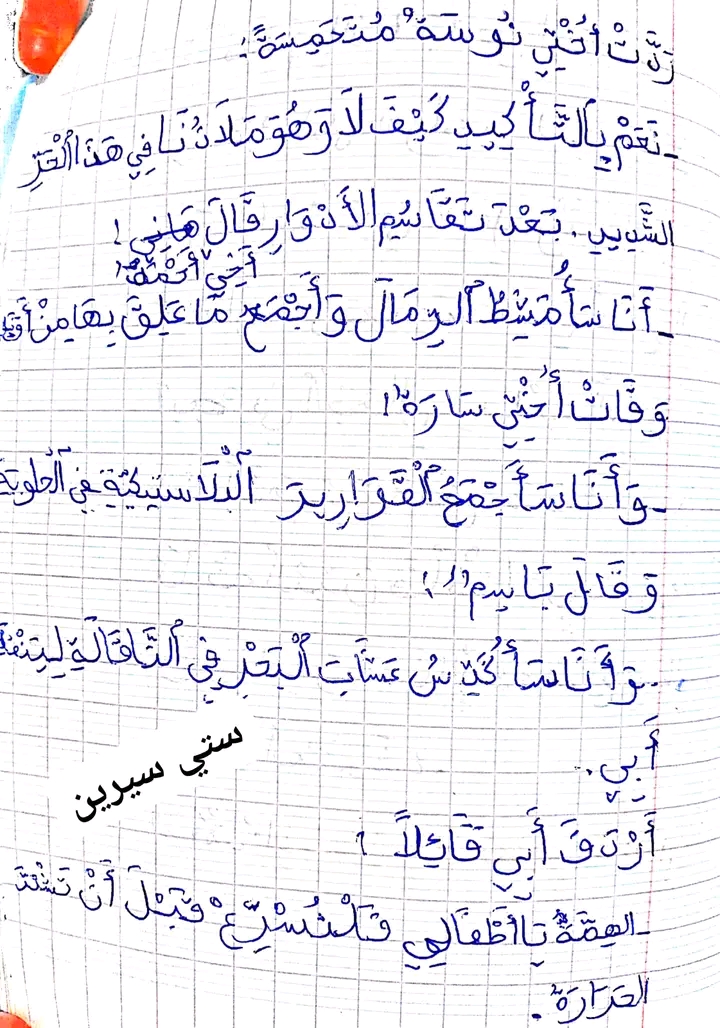 رَدَّتْ أُخْتِي نُوسَةُ مُتَحَمِسَةً:
- نَعَمْ بِالتَّأْكِيدِ كَيْفَ لَا وَهُوَ مَلَاذُنَا فِي هَذَا الْحَرِّ
الشَّدِيدِ. بَعْدَ تَقَاسُمِ الأَدْوَارِ قَالَ هَانِي !
أَخِي أَحْمَدُ
- أَنَا سَأُمَشِّطُ الرِّمَالَ وَأَجْمَعُ مَا عَلِقَ بِهَا مِنْ
وَقَالَتْ أُخْتِي سَارَة !
- وَأَنَا سَأَجْمَعُ الْقَوَارِيرَ الْبْلَاستِيكِيَّةِ فِي الْحَاوِيَةِ
وَقَالَ يَاسِم :
- وَأَنَا سَأُكَدِّسُ عَشَّابَ الْبَحْرِ فِي النَّاقَالَةِ لِيَنْقُلَهَا
أَبِي.
ستي سيرين
أَرْدَفَ أَبِي قَائِلاً :
- الهِمَّةُ يَا أَطْفَالِي فَلْنُسْرِعْ قَبْلَ أَنْ تَشْتَدَ
الحَرَارَةُ.